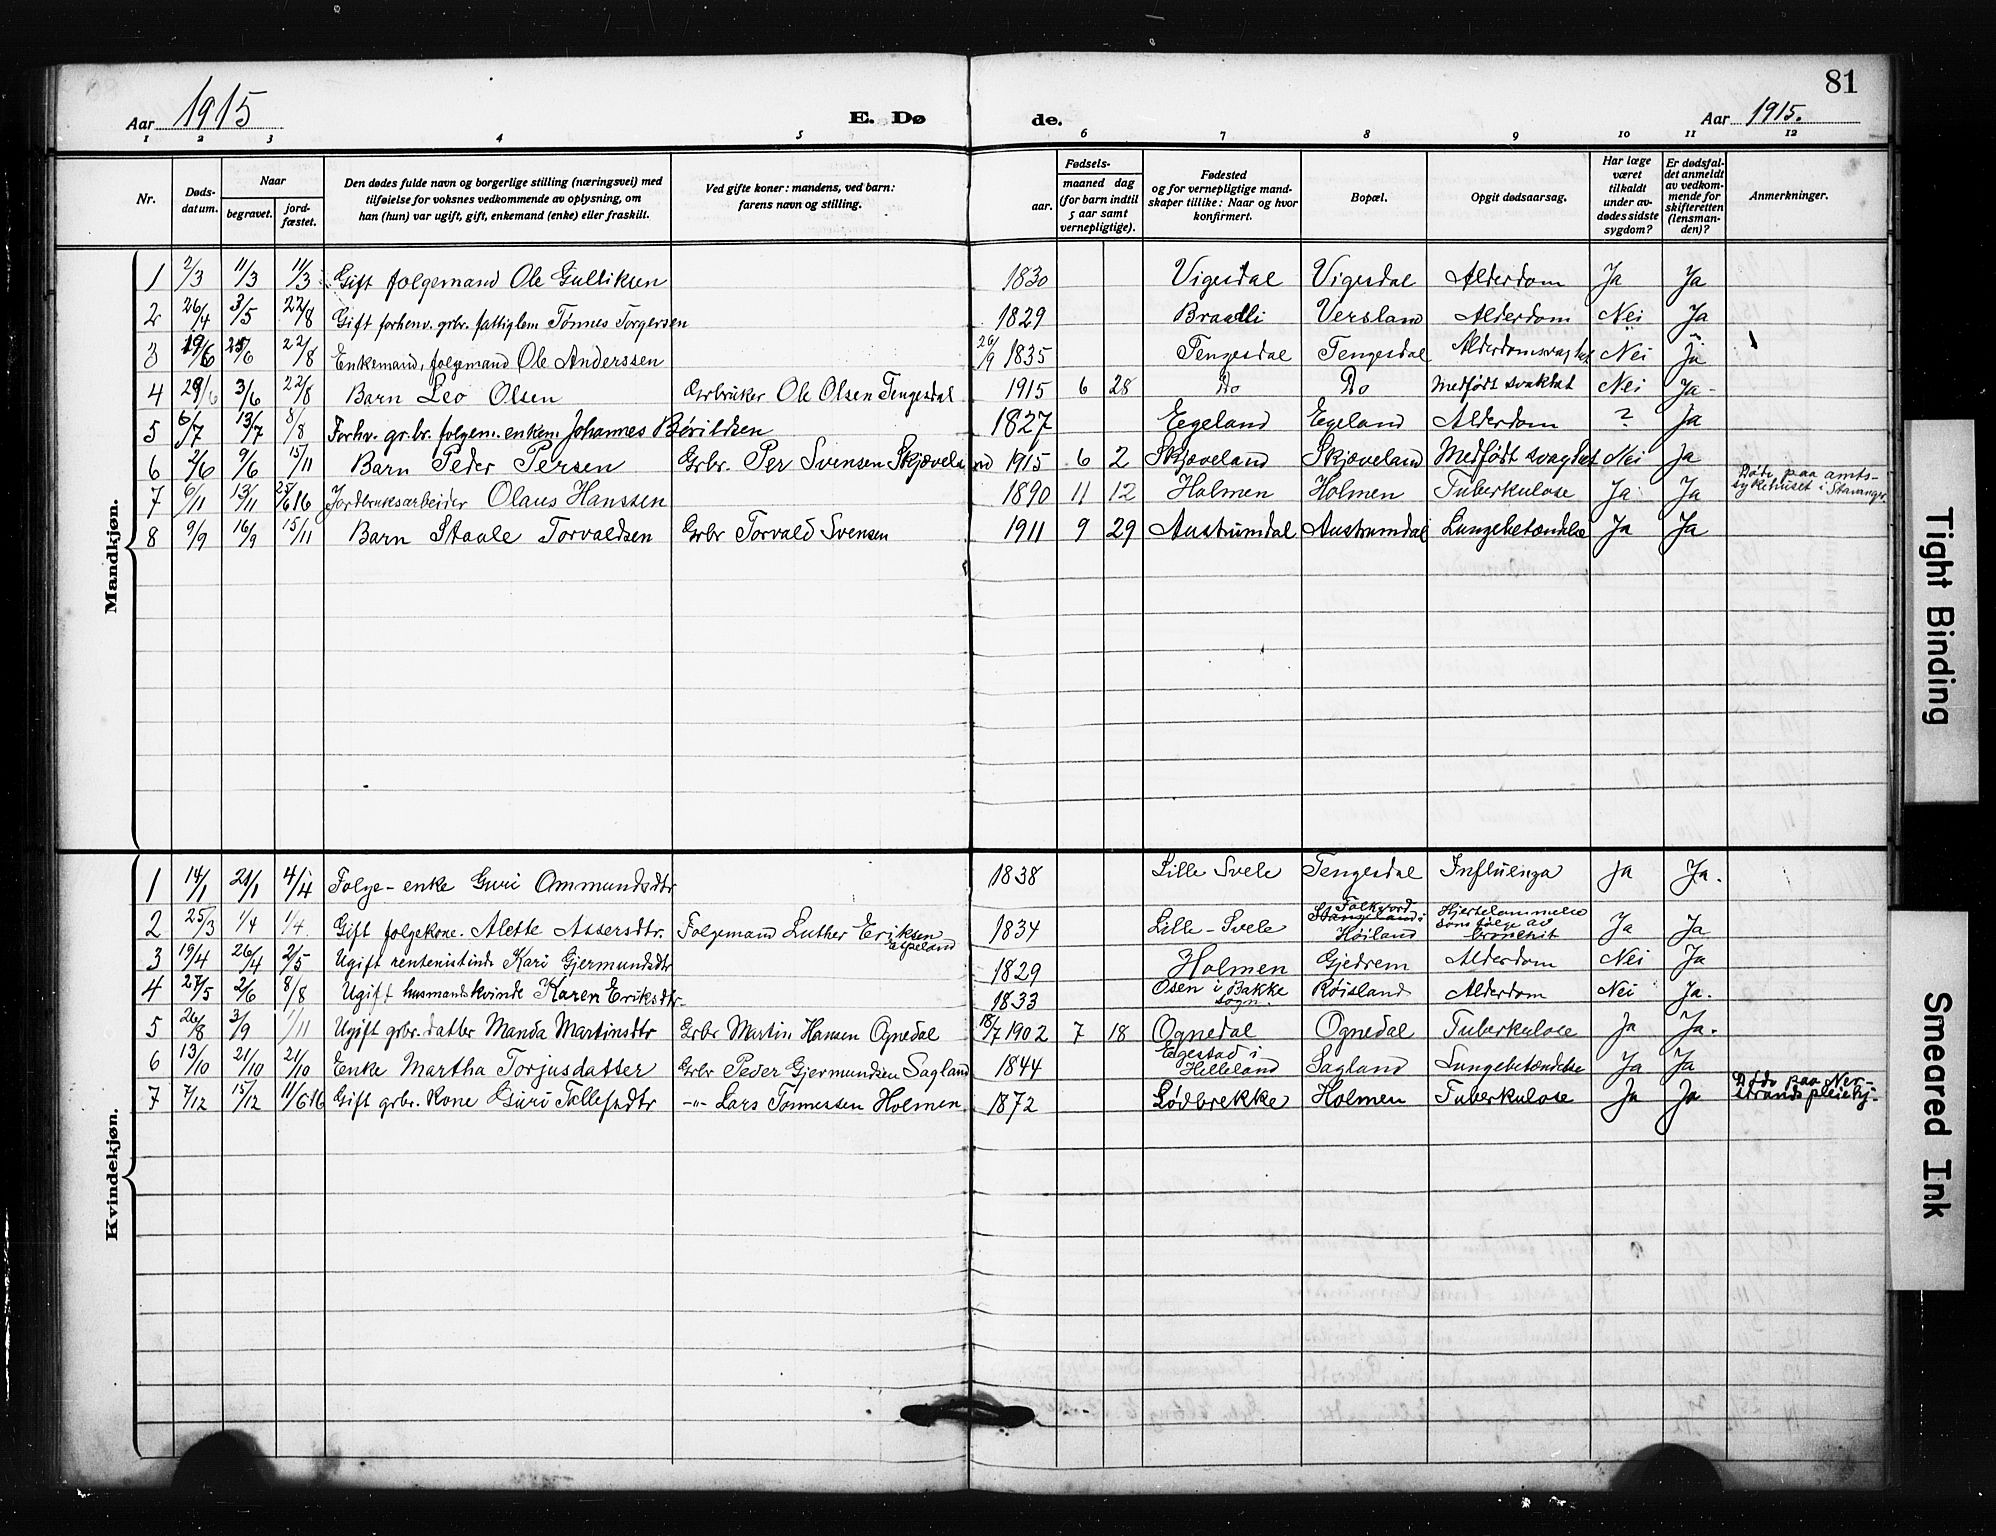 81
Aar 1915 E. Dø de. Aar 1915.
1 2 3 4 5 6 7 8 9 10 11 12
Nr.
Døds-
datum.
Naar
begravet.
jord-
fæstet.
Den dødes fulde navn og borgerlige stilling (næringsvei) med
tilføielse for voksnes vedkommende av oplysning, om
han (hun) var ugift, gift, enkemand (enke) eller fraskilt.
Ved gifte koner: mandens, ved barn:
farens navn og stilling.
Fødsels-
aar.
maaned dag
(for barn indtil
5 aar samt
vernepligtige).
Fødested
og for vernepligtige mand-
skaper tillike: Naar og hvor
konfirmert.
Bopæl.
Opgit dødsaarsag.
Har læge
været
tilkaldt
under av-
dødes sidste
sygdom?
Er dødsfal-
det anmeldt
av vedkom-
mende for
skifteretten
(lensman-
den)?
Anmerkninger.
Mandkjøn.
1 2/3 11/3 11/3 Gift folgemand Ole Gulliksen 1830 Vigesdal Vigesdal Alderdom Ja Ja
2 26/4 3/5 22/8 Gift forhenv. grbr. fattiglem Tønnes Torgersen 1829 Braelli Versland Alderdom Nei Ja
3 19/6 25/6 22/8 Enkemand, folgemand Ole Anderssen 26/9 1835 Tengesdal Tengesdal Alderdomssvaghet Nei Ja
4 29/6 3/6 22/8 Barn Leo Olsen Grbruker Ole Olsen Tengesdal 1915 6 28 Do Do Medfødt svakhet Nei Ja
5 6/7 13/7 8/8 Forhv. gr.br. folgem. enkem. Johannes Børildsen 1827 Egeland Egeland Alderdom ? Ja
6 2/6 9/6 15/11 Barn Peder Persen Grbr. Per Svensen Skjæveland 1915 6 2 Skjæveland Skjæveland Medfødt svaghet Nei Ja
7 6/11 13/11 25/6 16 Jordbruksarbeider Olaus Hanssen 1890 11 12 Holmen Holmen Tuberkulose Ja Ja Døde paa amts-
sykehuset i Stavanger
8 9/9 16/9 15/11 Barn Staale Torvaldsen Grbr Torvald Svensen 1911 9 29 Austrumdal Austrumdal Lungebetændelse Ja Ja
Kvindekjøn.
1 14/1 21/1 4/4 Folge-enke Guri Ommundsdtr 1838 Lille Svele Tengesdal Influenza Ja Ja.
2 25/3 1/4 1/4 Gift folgekone. Alette Assersdtr. Folgemand Luther Eriksen 1834 Lille-Svele Folkvord
Stangeland i
Høiland Hjertelammelse
som følge av
bronchit Ja Ja
3 19/4 26/4 2/5 Ugift rentenistinde Kari Gjermundsdtr 1829 Holmen Gjedrem Alderdom Nei Ja
4 27/5 2/6 8/8 Ugift husmandskvinde Karen Eriksdtr. 1833 Osen i Bakke
sogn. Røisland Alderdom Nei Ja.
5 26/8 3/9 /11 Ugift grbr. datter Manda Martinsdtr Grbr Martin Hansen Ognedal 18/7 1902 7 18 Ognedal Ognedal Tuberkulose Ja Ja.
6 13/10 21/10 21/10 Enke Martha Torjusdatter Grbr Peder Gjermundsen Sagland 1844 Egestad i
Helleland Sagland Lungebetændelse Ja Ja
7 7/12 15/12 11/6 16 Gift grbr. kone Guri Tollefsdtr -"- Lars Tønnessen Holmen 1872 Lødbrekke Holmen Tuberkulose Ja Ja Døde paa Ner-
strands pleiehj.
Tight Binding
Smeared Ink